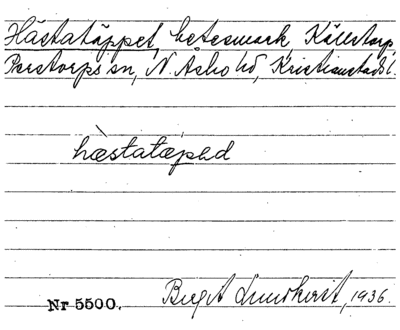 Hästatäppet, betesmark, Källstorp
Perstorps sn, N. Åsbo hd, Kristianstads l.
hæ̀statæpəd
Birgit Lundkvist, 1936.
Nr 5500.